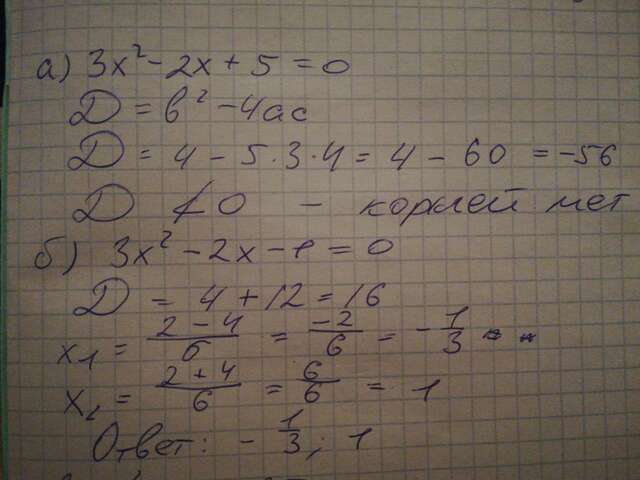 а) 3x² - 2x + 5 = 0
D = b² - 4ac
D = 4 - 5·3·4 = 4 - 60 = -56
D < 0 - корней нет
б) 3x² - 2x - 1 = 0
D = 4 + 12 = 16
x₁ = (2 - 4)/6 = -2/6 = -1/3
x₂ = (2 + 4)/6 = 6/6 = 1
Ответ: -1/3; 1